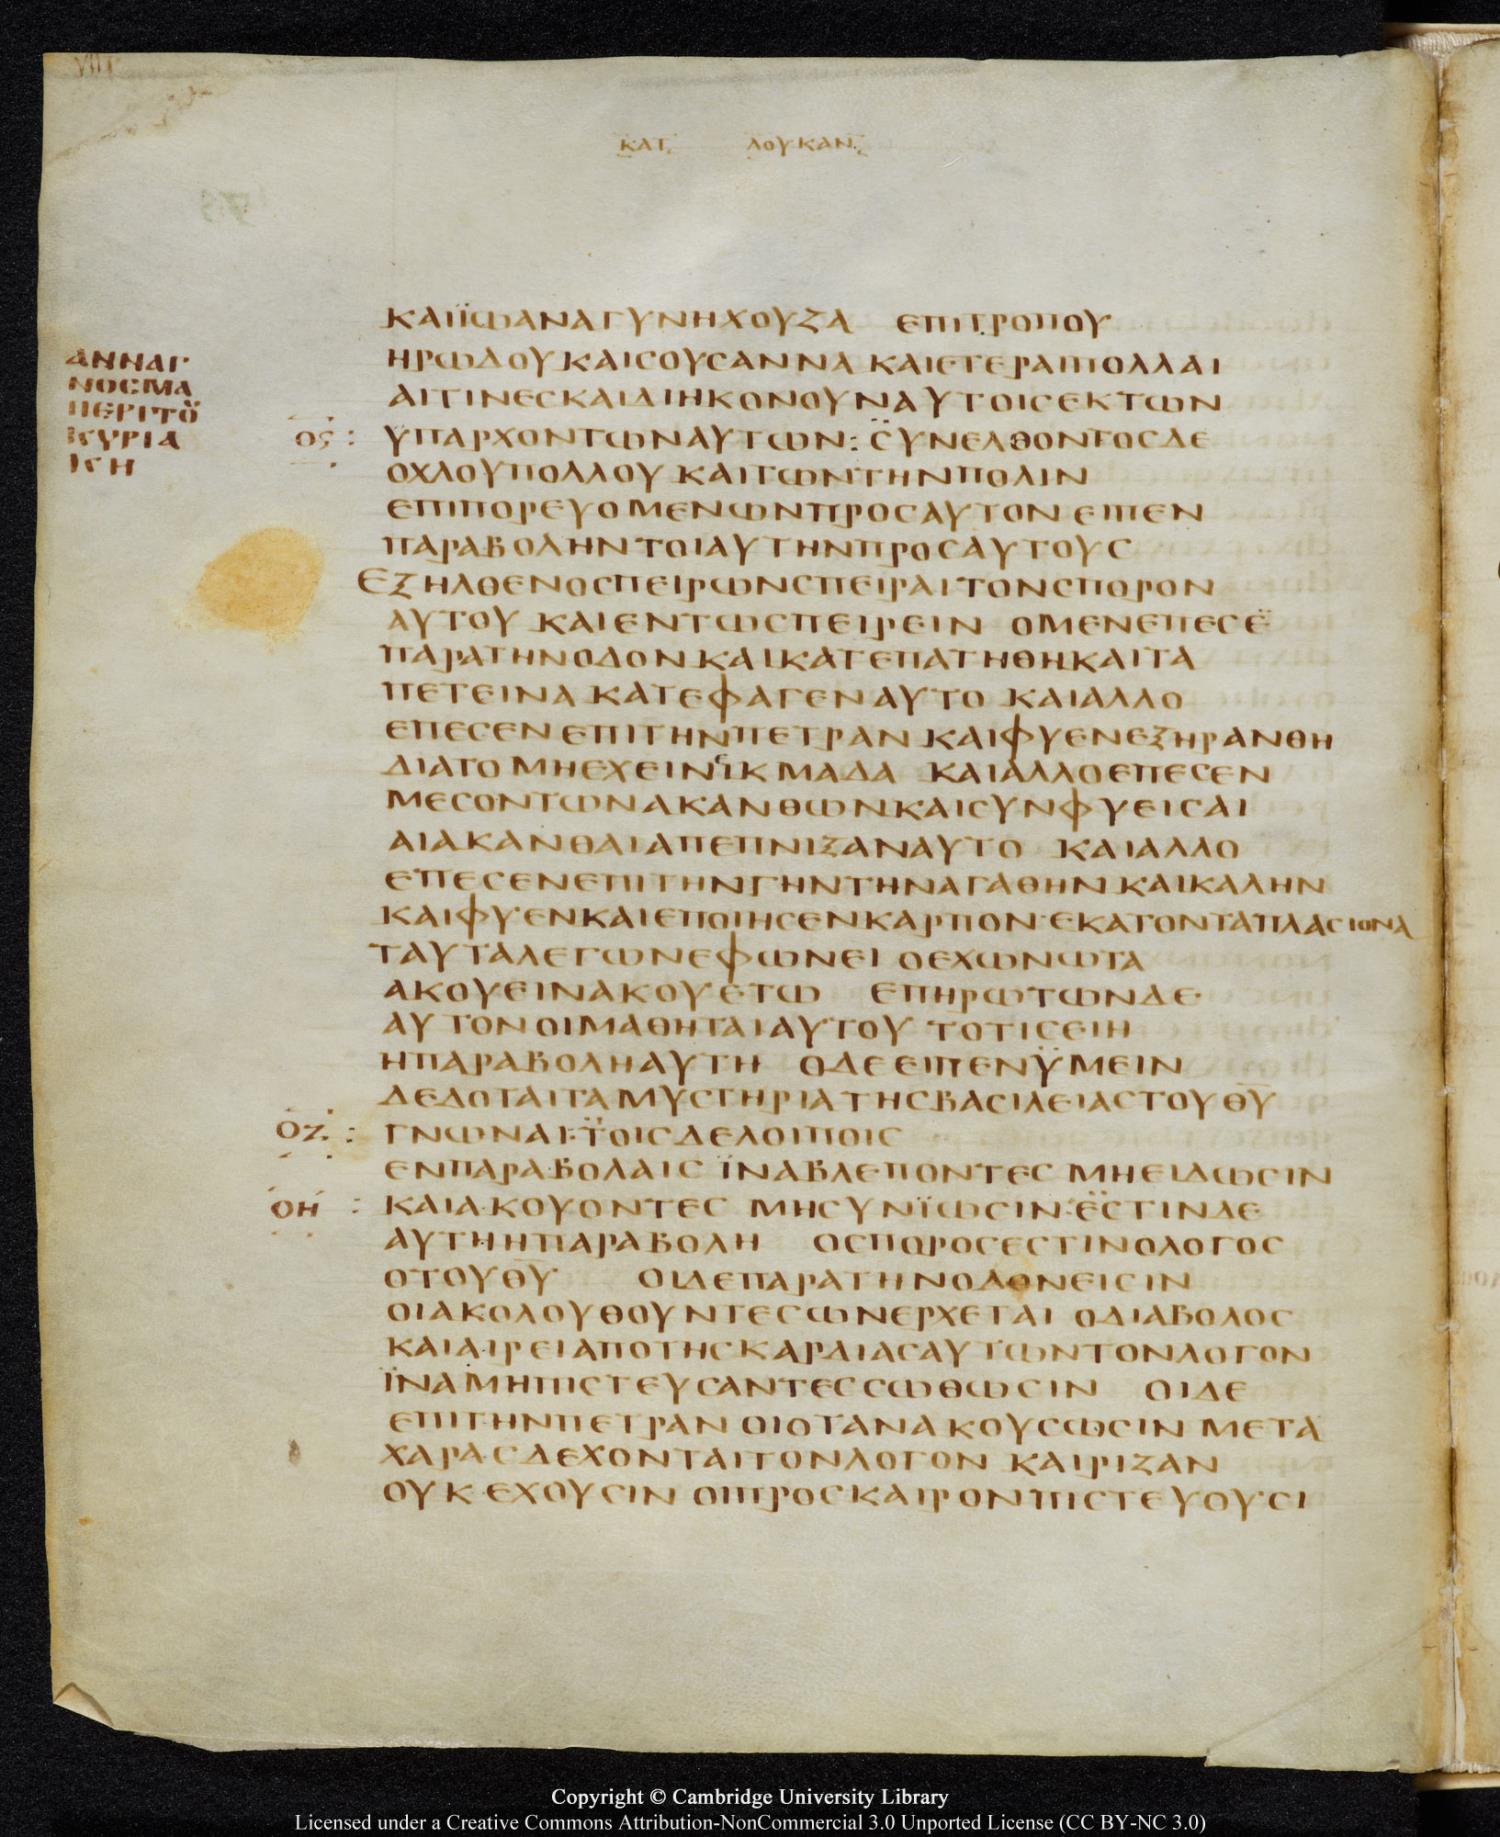 ΚΑΤ ΛΟΥΚΑΝ
ΑΝΝΑΓ
ΝΟΣΜΑ
ΠΕΡΙΤΟΥ
ΚΥΡΙΑ
ΚΗ
ΚΑΙΪΩΑΝΑΓΥΝΗΧΟΥΖΑ ΕΠΙΤΡΟΠΟΥ
ΗΡΩΔΟΥΚΑΙϹΟΥϹΑΝΝΑ ΚΑΙΕΤΕΡΑΙΠΟΛΛΑΙ
ΑΙΤΙΝΕϹΚΑΙΔΙΗΚΟΝΟΥΝΑΥΤΟΙϹΕΚΤΩΝ
ΟϚ : ΫΠΑΡΧΟΝΤΩΝΑΥΤΩΝ: ϹΥΝΕΛΘΟΝΤΟϹΔΕ
ΟΧΛΟΥΠΟΛΛΟΥ ΚΑΙΤΩΝΤΗΝΠΟΛΙΝ
ΕΠΙΠΟΡΕΥΟΜΕΝΩΝΠΡΟϹΑΥΤΟΝ ΕΙΠΕΝ
ΠΑΡΑΒΟΛΗΝΤΟΙΑΥΤΗΝΠΡΟϹΑΥΤΟΥϹ
ΕΞΗΛΘΕΝΟϹΠΕΙΡΩΝϹΠΕΙΡΑΙΤΟΝϹΠΟΡΟΝ
ΑΥΤΟΥ ΚΑΙΕΝΤΩϹΠΕΙΡΕΙΝ ΟΜΕΝΕΠΕϹΕ̈
ΠΑΡΑΤΗΝΟΔΟΝΚΑΙΚΑΤΕΠΑΤΗΘΗΚΑΙΤΑ
ΠΕΤΕΙΝΑ ΚΑΤΕΦΑΓΕΝΑΥΤΟ ΚΑΙΑΛΛΟ
ΕΠΕϹΕΝΕΠΙΤΗΝΠΕΤΡΑΝ ΚΑΙΦΥΕΝΕΞΗΡΑΝΘΗ
ΔΙΑΤΟΜΗΕΧΕΙΝΙΚΜΑΔΑ ΚΑΙΑΛΛΟΕΠΕϹΕΝ
ΜΕϹΟΝΤΩΝΑΚΑΝΘΩΝΚΑΙϹΥΝΦΥΕΙϹΑΙ
ΑΙΑΚΑΝΘΑΙΑΠΕΠΝΙΞΑΝΑΥΤΟ ΚΑΙΑΛΛΟ
ΕΠΕϹΕΝΕΠΙΤΗΝΓΗΝΤΗΝΑΓΑΘΗΝΚΑΙΚΑΛΗΝ
ΚΑΙΦΥΕΝΚΑΙΕΠΟΙΗϹΕΝΚΑΡΠΟΝ·ΕΚΑΤΟΝΤΑΠΛΑϹΙΟΝΑ
ΤΑΥΤΑΛΕΓΩΝΕΦΩΝΕΙ ΟΕΧΩΝΩΤΑ
ΑΚΟΥΕΙΝΑΚΟΥΕΤΩ ΕΠΗΡΩΤΩΝΔΕ
ΑΥΤΟΝΟΙΜΑΘΗΤΑΙΑΥΤΟΥ ΤΟΤΙϹΕΙΗ
ΗΠΑΡΑΒΟΛΗΑΥΤΗ ΟΔΕΕΙΠΕΝΫΜΕΙΝ
ΔΕΔΟΤΑΙΤΑΜΥϹΤΗΡΙΑΤΗϹΒΑϹΙΛΕΙΑϹΤΟΥΘΥ
ΟΖ : ΓΝΩΝΑΙ·ΤΟΙϹΔΕΛΟΙΠΟΙϹ
ΕΝΠΑΡΑΒΟΛΑΙϹ ΪΝΑΒΛΕΠΟΝΤΕϹ ΜΗΕΙΔΩϹΙΝ
ΟΗ : ΚΑΙΑΚΟΥΟΝΤΕϹ ΜΗϹΥΝΪΩϹΙΝ·ΕϹΤΙΝΔΕ
ΑΥΤΗΗΠΑΡΑΒΟΛΗ ΟϹΠΟΡΟϹΕϹΤΙΝΟΛΟΓΟϹ
ΟΤΟΥΘΥ ΟΙΔΕΠΑΡΑΤΗΝΟΔΟΝΕΙϹΙΝ
ΟΙΑΚΟΛΟΥΘΟΥΝΤΕϹΩΝΕΡΧΕΤΑΙ ΟΔΙΑΒΟΛΟϹ
ΚΑΙΑΙΡΕΙΑΠΟΤΗϹΚΑΡΔΙΑϹΑΥΤΩΝΤΟΝΛΟΓΟΝ
ΪΝΑΜΗΠΙϹΤΕΥϹΑΝΤΕϹϹΩΘΩϹΙΝ ΟΙΔΕ
ΕΠΙΤΗΝΠΕΤΡΑΝ ΟΙΟΤΑΝΑΚΟΥϹΩϹΙΝ ΜΕΤΑ
ΧΑΡΑϹΔΕΧΟΝΤΑΙΤΟΝΛΟΓΟΝ ΚΑΙΡΙΖΑΝ
ΟΥΚΕΧΟΥϹΙΝ ΟΙΠΡΟϹΚΑΙΡΟΝΠΙϹΤΕΥΟΥϹΙ
Copyright © Cambridge University Library
Licensed under a Creative Commons Attribution-NonCommercial 3.0 Unported License (CC BY-NC 3.0)